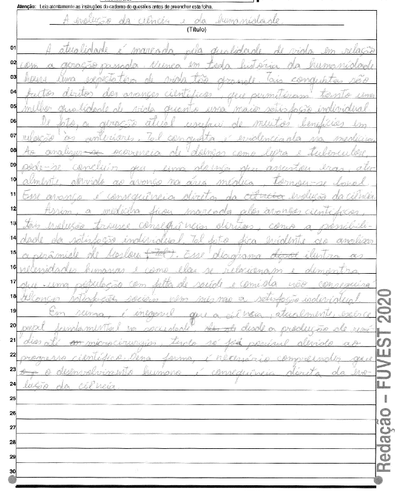 Atenção: Leia atentamente as instruções do caderno de questões antes de preencher esta folha.
A evolução da ciência e da humanidade
(Título)
01 A atualidade é marcada pela qualidade de vida em relação
02 com a geração passada. Nunca em toda história da humanidade
03 houve uma expectativa de vida tão grande. Tais conquistas são
04 frutos diretos dos avanços científicos que permitiram tanto uma
05 melhor qualidade de vida quanto uma maior satisfação individual
06 De fato, a geração atual usufrui de muitos benefícios em
07 relação às anteriores. Tal conquista é evidenciada na medicina
08 Ao analisar a ocorrência de doenças como lepra tuberculose
09 pode-se concluir que uma doença que antes era
10 devido ao avanço na área médica tornou-se
11 Esse avanço é consequência direta da evolução da ciência.
12 Assim, a medicina foi marcada pelos avanços científicos.
13 Tal evolução trouxe consequências diretas como a possibili-
14 dade da satisfação individual. Tal fato fica evidente ao analisar
15 a pirâmide de Maslow. Esse diagrama ilustra as
16 necessidades humanas e como elas se relacionam e demonstra
17 que uma população com falta de saúde e comida não conseguiria
18 alcançar satisfação social nem mesmo a satisfação individual
19 Em suma, é inegável que a ciência atualmente exerce
20 papel fundamental na sociedade desde a produção de remé-
21 dios até microcirurgias, tudo se foi possível devido ao
22 progresso científico. Dessa forma, é necessário compreender que
23 o desenvolvimento humano é consequência direta da evo-
24 lução da ciência.
25
26
27
28
29
30
Redação – FUVEST 2020